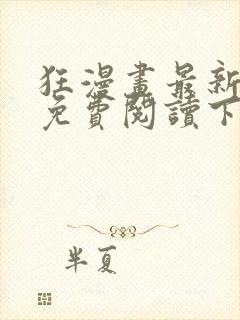 狂漫畫最新
免費閱讀下
半夏